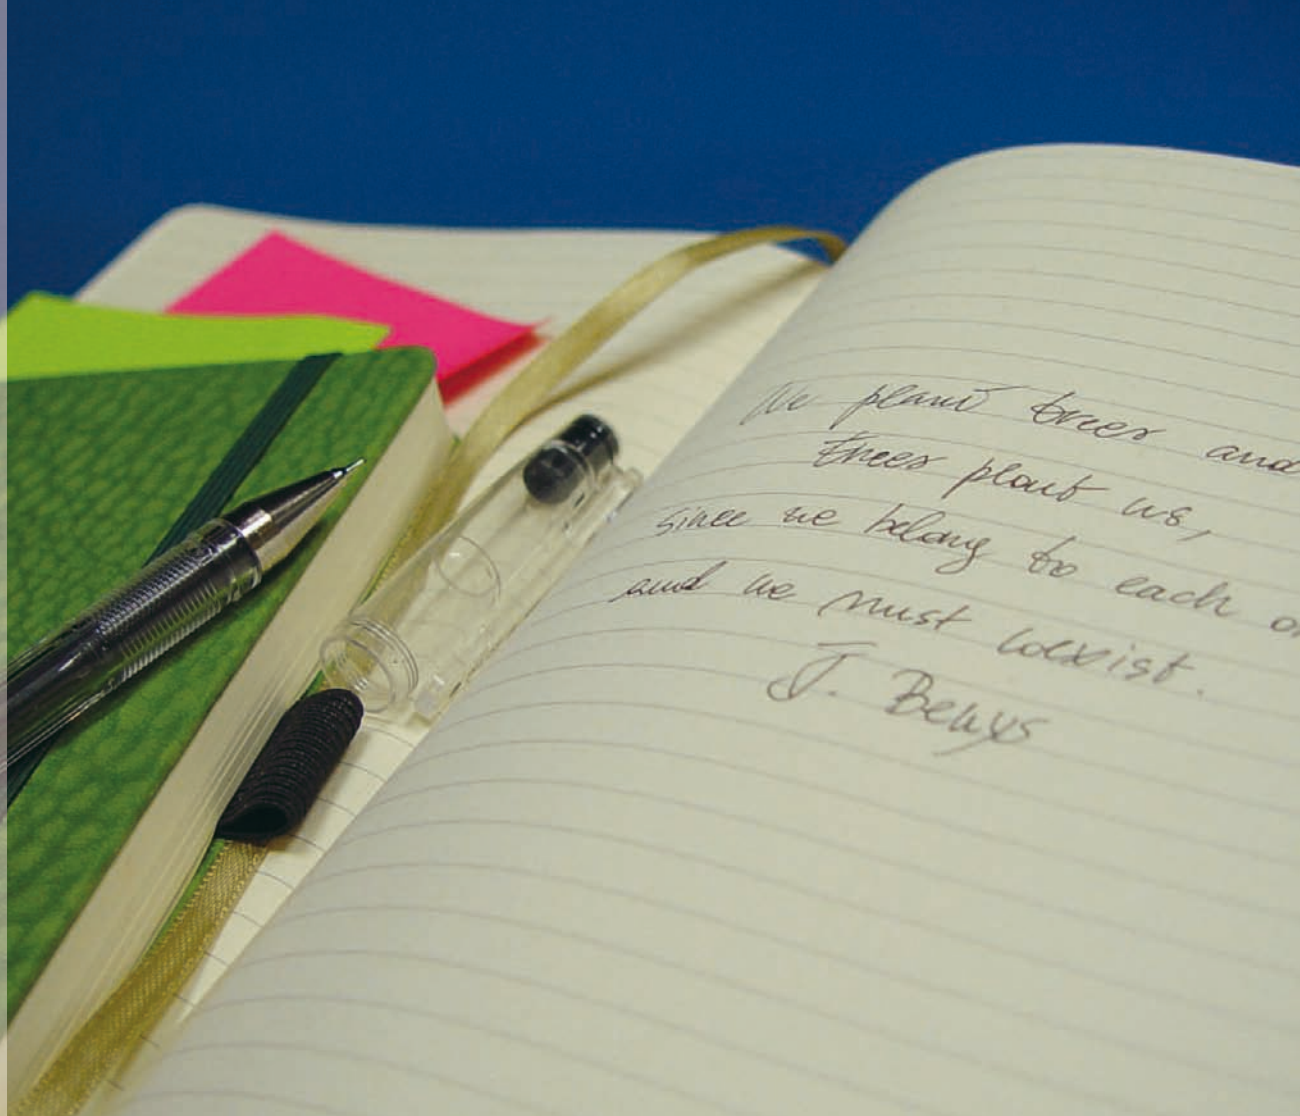 We plant trees and
trees plant us,
since we belong to each o
and we must coexist.
J. Beuys